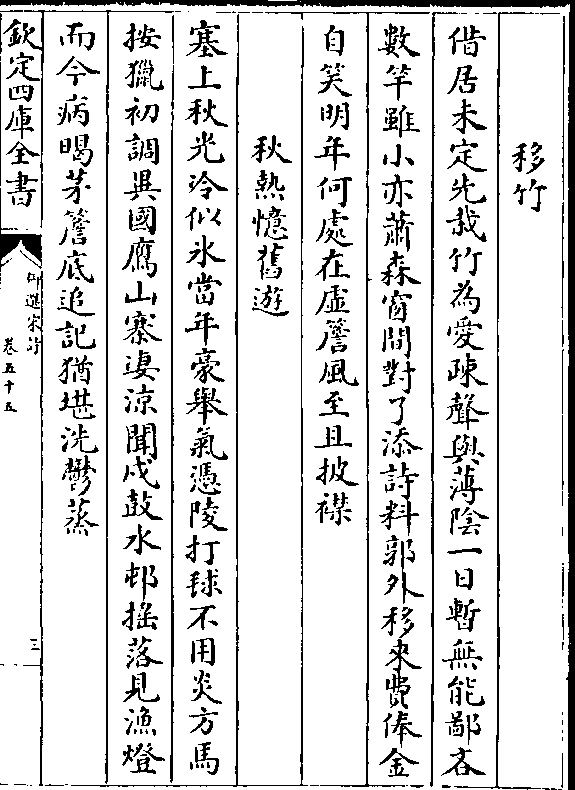 移竹
借居未定先栽竹為愛疎聲與薄陰一日暫無能鄙吝
數竿雖小亦蕭森窗間對了添詩料郭外移來費俸金
自笑明年何處在虛簷風至且披襟
秋熱憶舊遊
塞上秋光冷似氷當年豪舉氣憑陵打毬不用炎方馬
按獵初調異國鷹山寨淒涼聞戍鼓水邨揺落見漁燈
而今病暍茅簷底追記猶堪洗鬱蒸
欽定四庫全書
御選宋詩
卷五十五
三